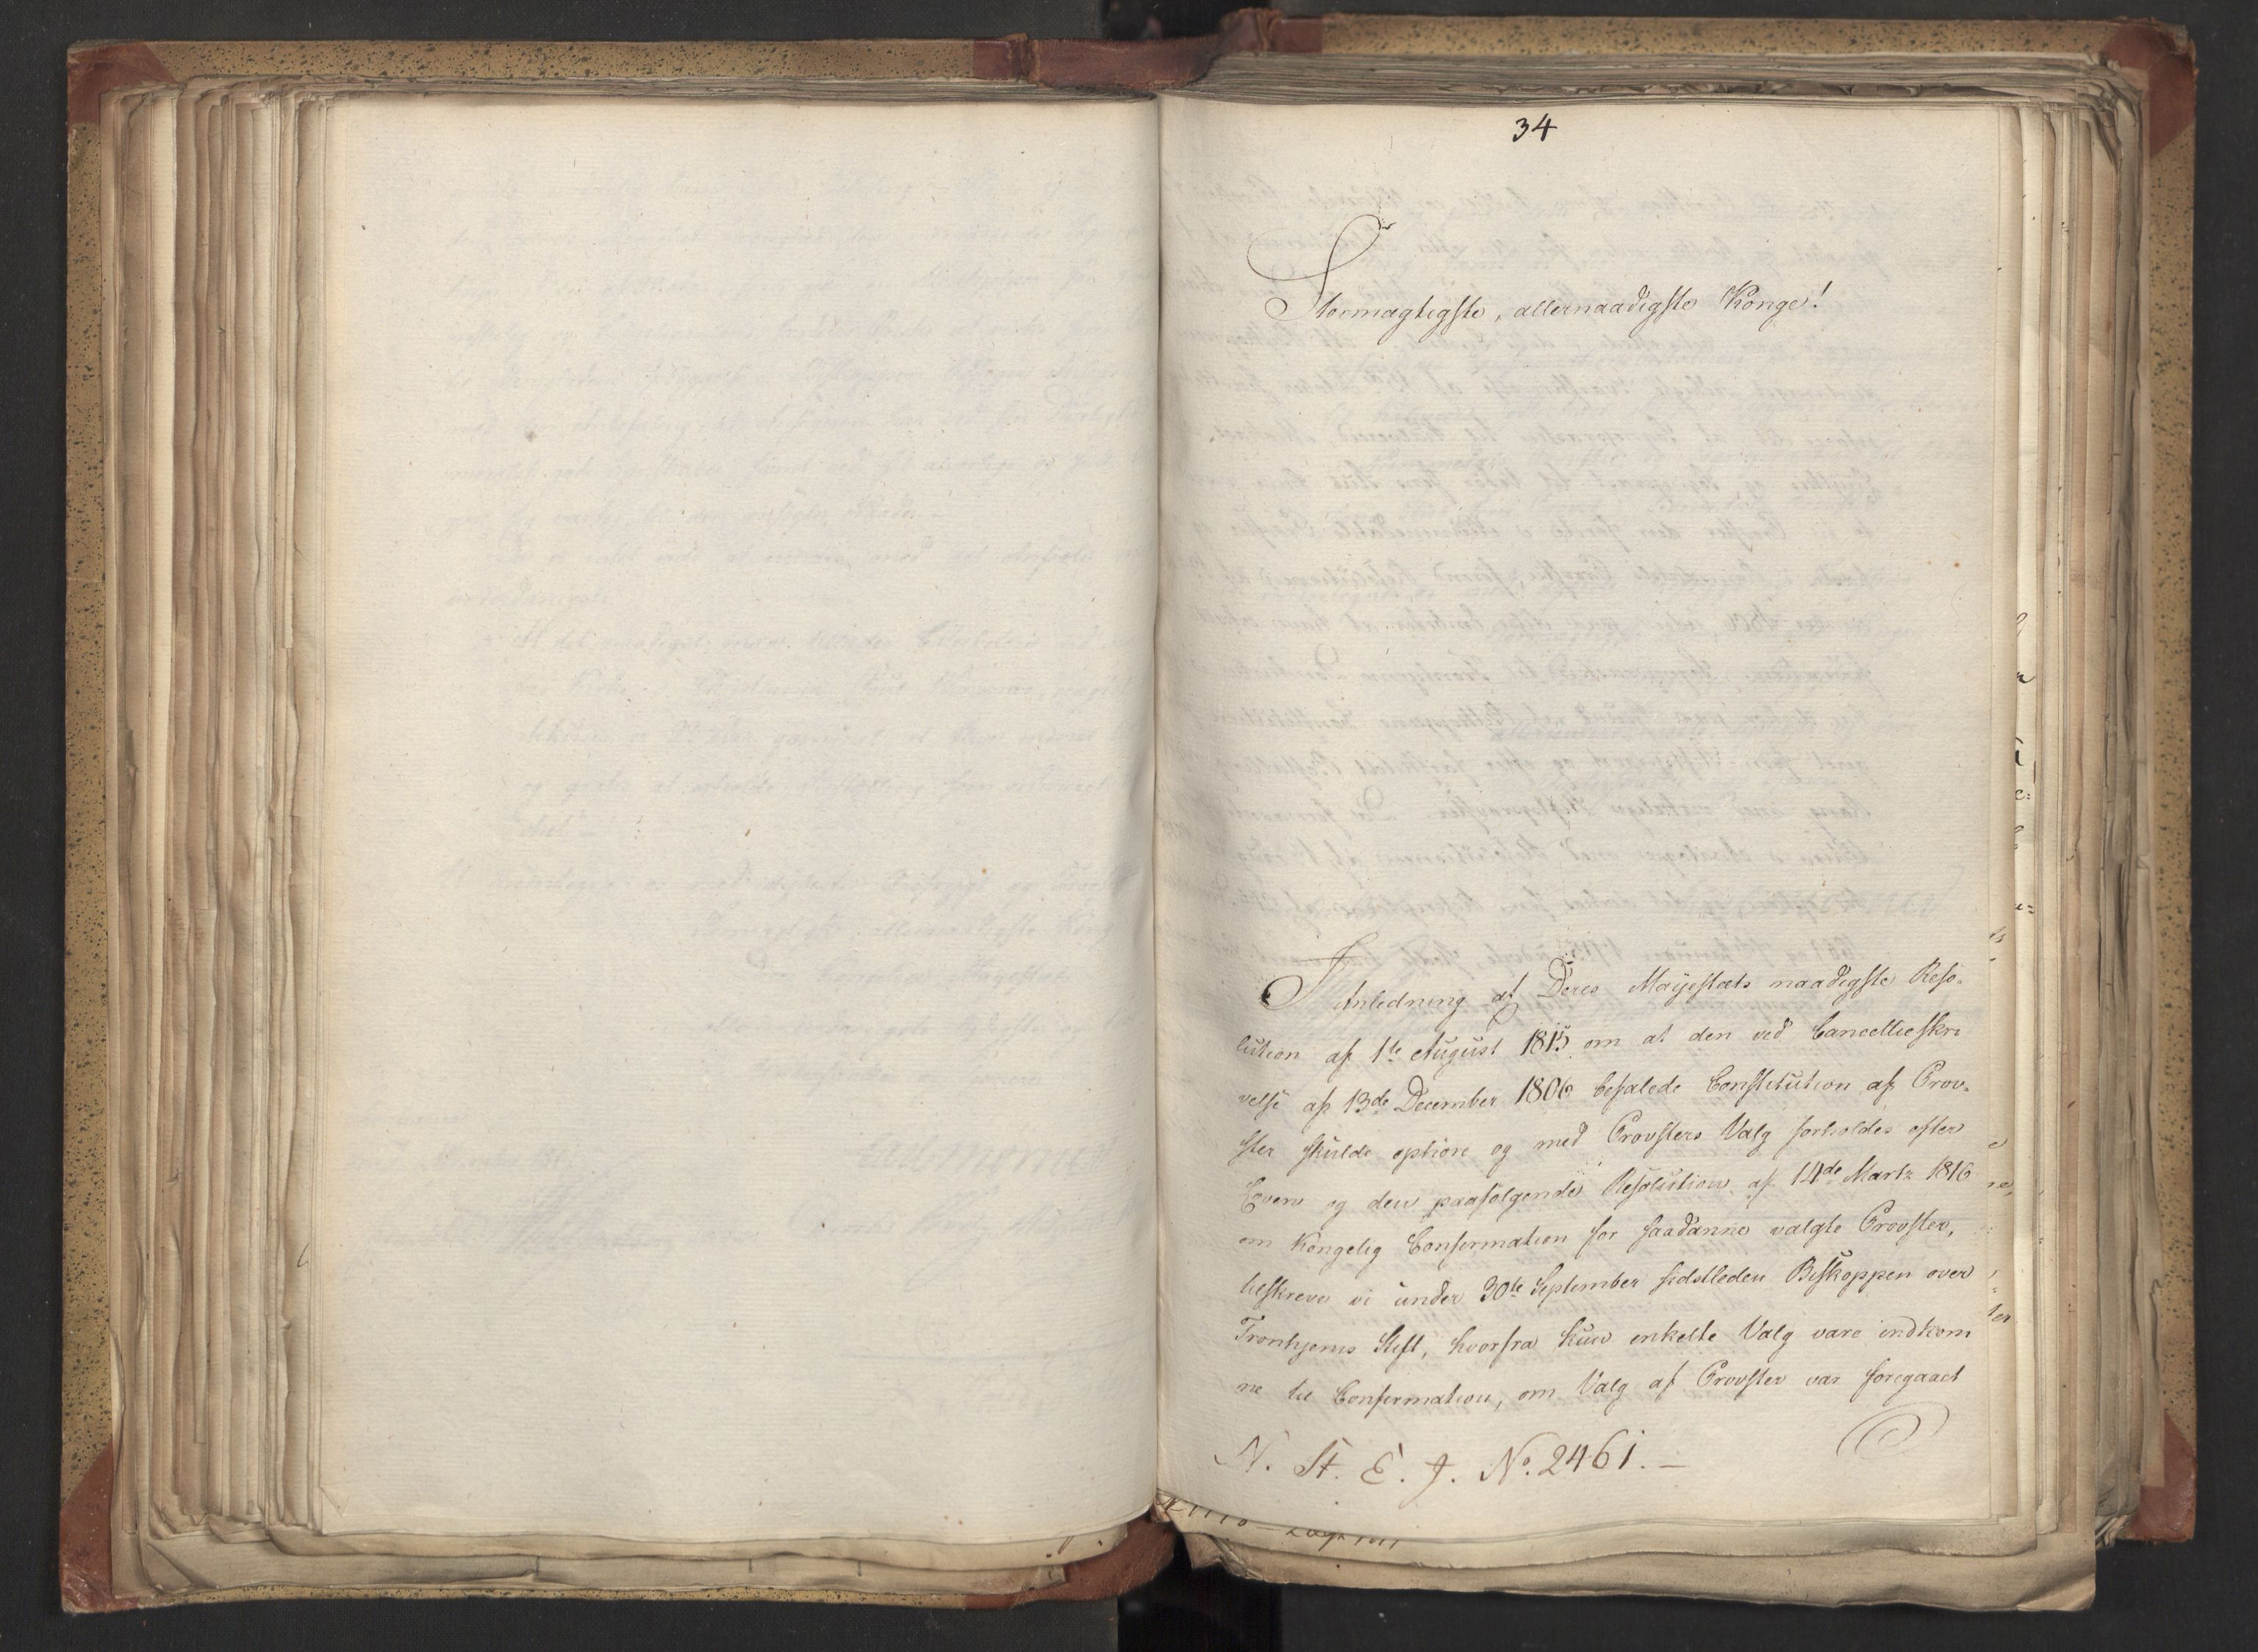 34
Stormægtigste, allernaadigste Konge!
I Anledning af Deres Majestæts naadigste Reso-
lution af 1ste August 1815 om at den ved Cancellieskri
velse af 13de December 1806 befalede Constitution af Prov-
ster skulde ophøre og med Provsters Valg forholdes efter
Loven og den paafølgende Resolution af 14de Marts 1816
om Kongelig Confirmation for saadanne valgte Provster,
tilskreve vi under 30te September sidstleden Biskoppen over
Tronhjems Stift, hvorfra kun enkelte Valg vare indkom
ne til Confirmation, om Valg af Provster var foregaaet
N. St. E. J. No. 2461.-